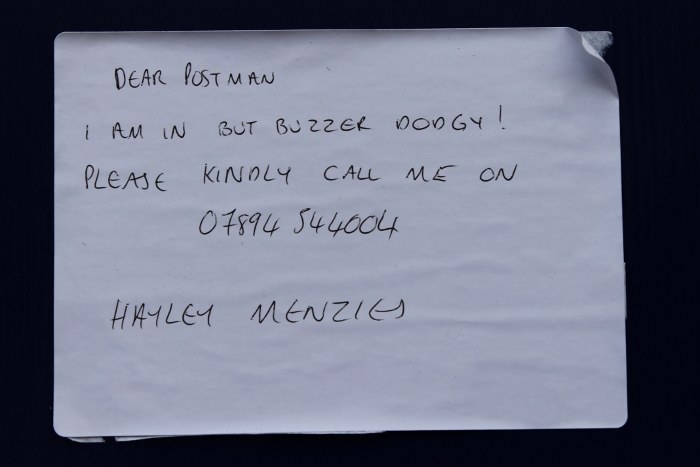 DEAR POSTMAN
I AM IN BUT BUZZER DODGY!
PLEASE KINDLY CALL ME ON
07894 544004
HAYLEY MENZIES